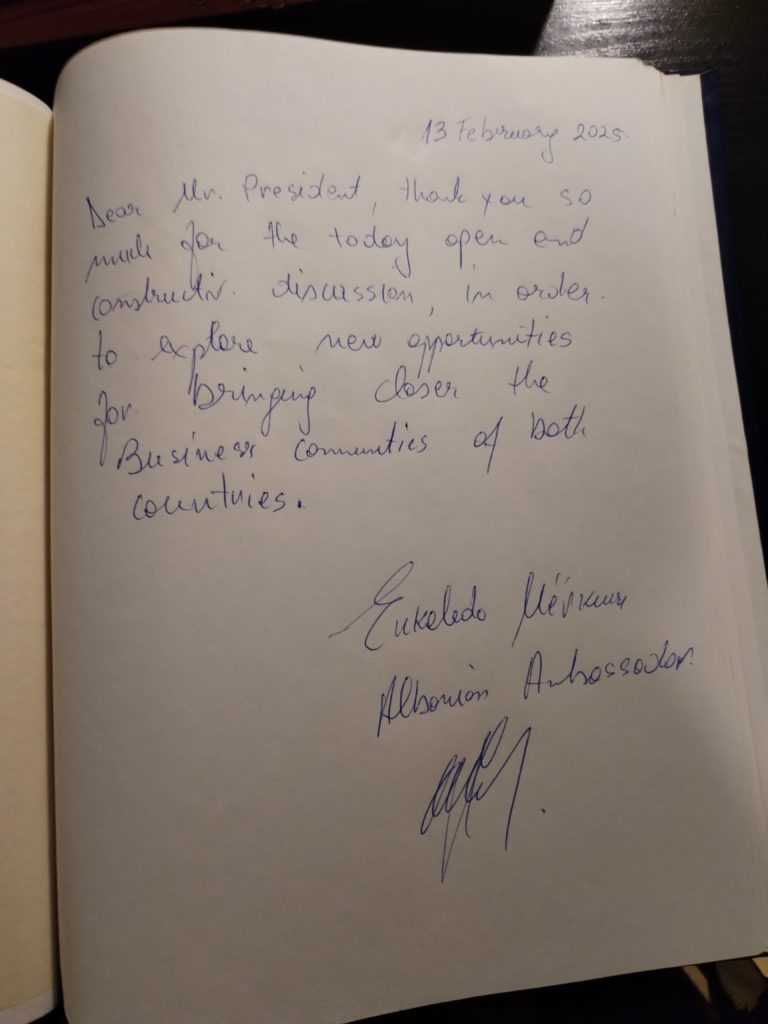 13 February 2025.
Dear Mr. President, thank you so
much for the today open and
constructiv. discussion, in order.
to explore new opportunities
for bringing closer the
Business communties of both
countries.
Enkeleda
Albanian Ambassador.